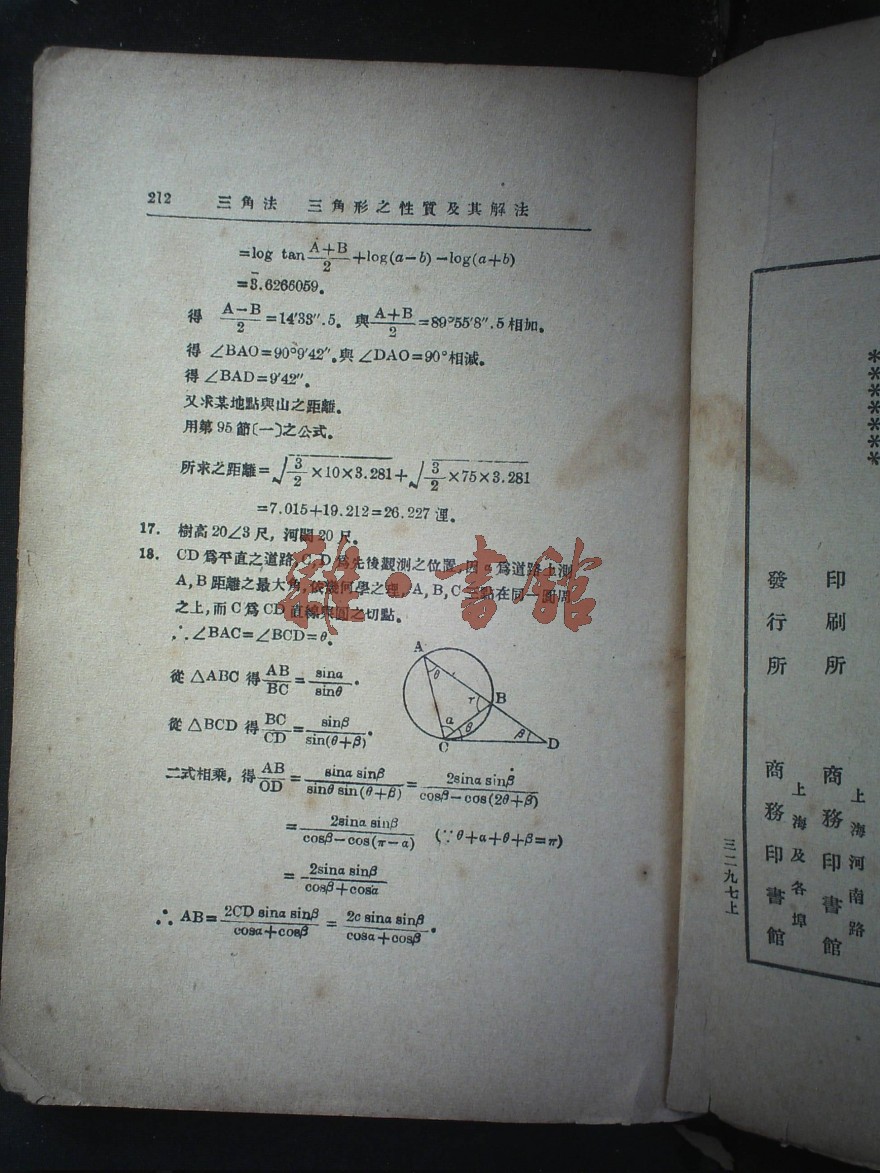 212 三角法 三角形之性質及其解法
=log tan (A+B)/2 +log(a−b) −log(a+b)
=3̄.6266059。
得 (A−B)/2 =14′33″.5。與 (A+B)/2 =89°55′8″.5相加。
得 ∠BAO=90°9′42″。與 ∠DAO=90°相減。
得 ∠BAD=9′42″。
又求某地點與山之距離。
用第95節〔一〕之公式。
所求之距離=√(3/2 ×10×3.281)+√(3/2 ×75×3.281)
=7.015+19.212=26.227 浬。
17. 樹高20∠3尺, 河闊20尺。
18. CD爲平直之道路, C, D爲先後觀測之位置, 因α爲道路上測
A, B距離之最大角, 依幾何學之理, A, B, C三點在同一圓周
之上, 而C爲CD直線與圓之切點。
∴∠BAC=∠BCD=θ.
從 △ABC 得 AB/BC = sinα/sinθ.
從 △BCD 得 BC/CD = sinβ/sin(θ+β).
A
θ
r
B
α
θ
β
C
D
二式相乘, 得 AB/CD = sinα sinβ/sinθ sin(θ+β) = 2sinα sinβ/cosβ−cos(2θ+β)
= 2sinα sinβ/cosβ−cos(π−α) (∵θ+α+θ+β=π)
= 2sinα sinβ/cosβ+cosα
∴ AB= 2CD sinα sinβ/cosα+cosβ = 2c sinα sinβ/cosα+cosβ.
雜·書館
*******
印刷所
發行所
上海河南路
商務印書館
上海及各埠
商務印書館
三二九七上